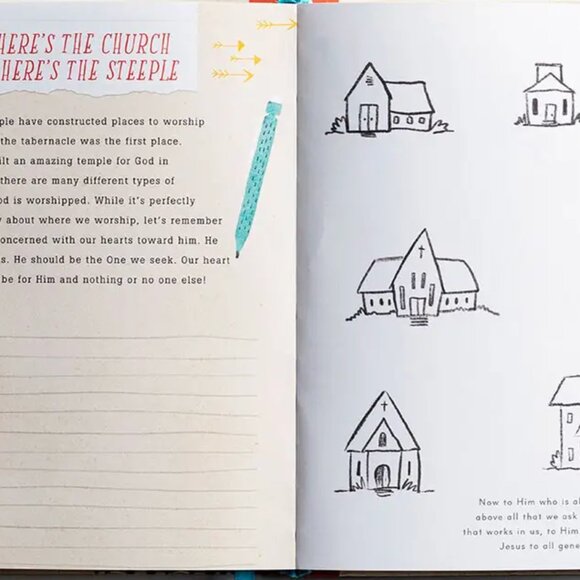 HERE'S THE CHURCH
HERE'S THE STEEPLE
have constructed places to worship
the tabernacle was the first place.
an amazing temple for God in
there are many different types of
is worshipped. While it's perfectly
about where we worship, let's remember
concerned with our hearts toward him. He
He should be the One we seek. Our heart
be for Him and nothing or no one else!
Now to Him who is
above all that we ask
that works in us, to Him
Jesus to all